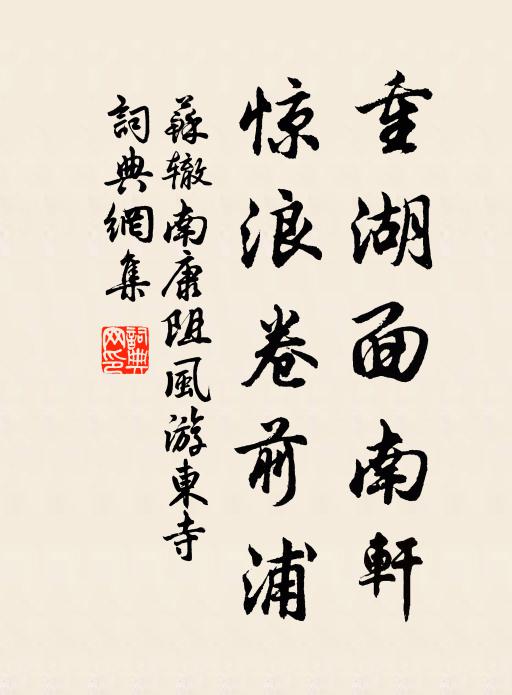 重湖面南軒
惊浪卷前浦
蘇辙南康阻風游東寺
詞典網集
詞典网印